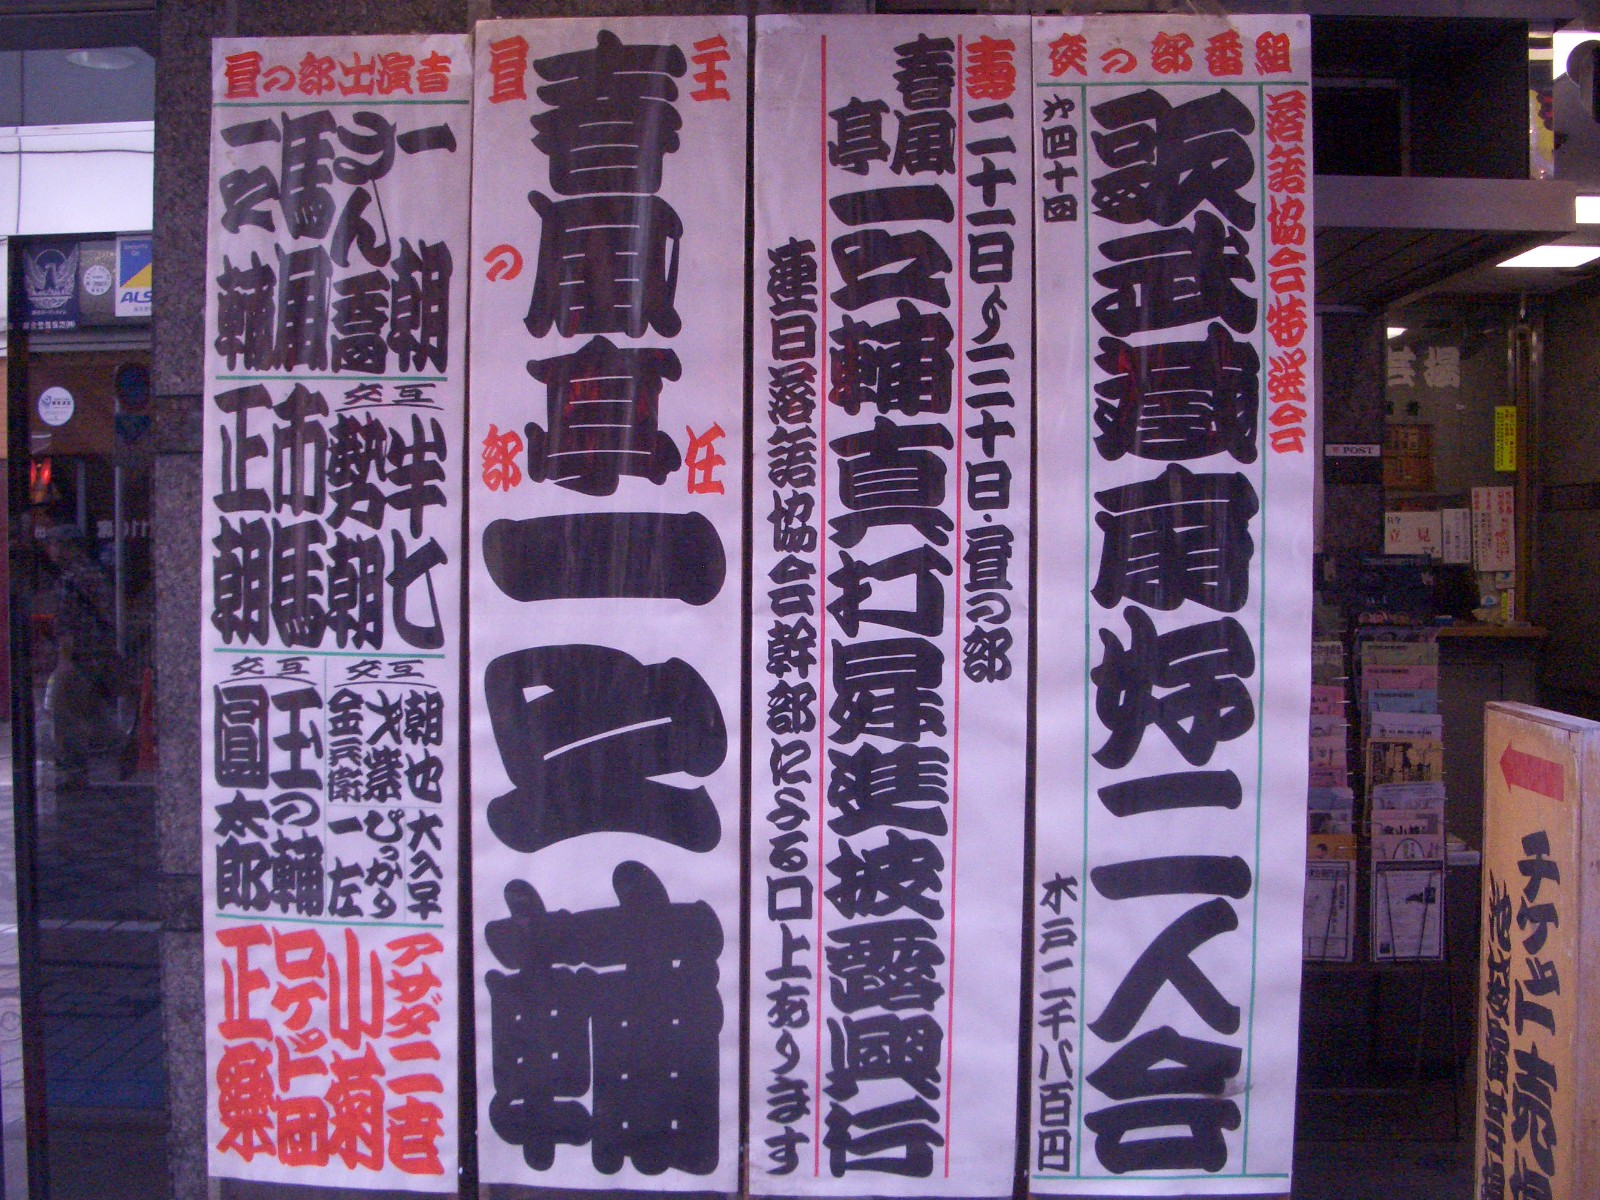 夜の部番組
落語協会特選会
歌武蔵兼好二人会
第四十四
木戸二千八百円
寿二十一日〜三十日・昼の部
春風亭一之輔真打昇進披露興行
連日落語協会幹部による口上あります
主任
春風亭一之輔
昼の部
昼の部出演者
一朝
さん喬
馬風
一之輔
交互
半七
勢朝
市馬
正朝
交互
朝也
才紫
金兵衛
大入早
ぴっかり
一左
交互
玉の輔
圓太郎
アサダ二世
小菊
ロケット団
正楽
POST
立見
ALS
チケット売